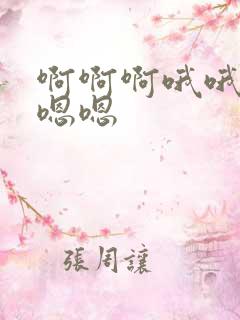 啊啊啊哦哦
嗯嗯
張周讓